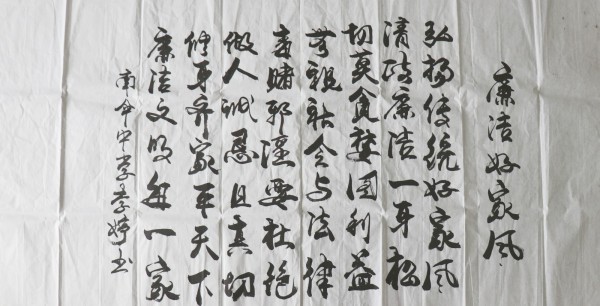 廉洁好家风
弘扬传统好家风
清政廉洁一身松
切莫贪婪图利益
视社会与法律
毒赌邪淫要杜绝
做人诚恳且真切
修身齐家平天下
廉洁文明每一家
南伞中学李婷书